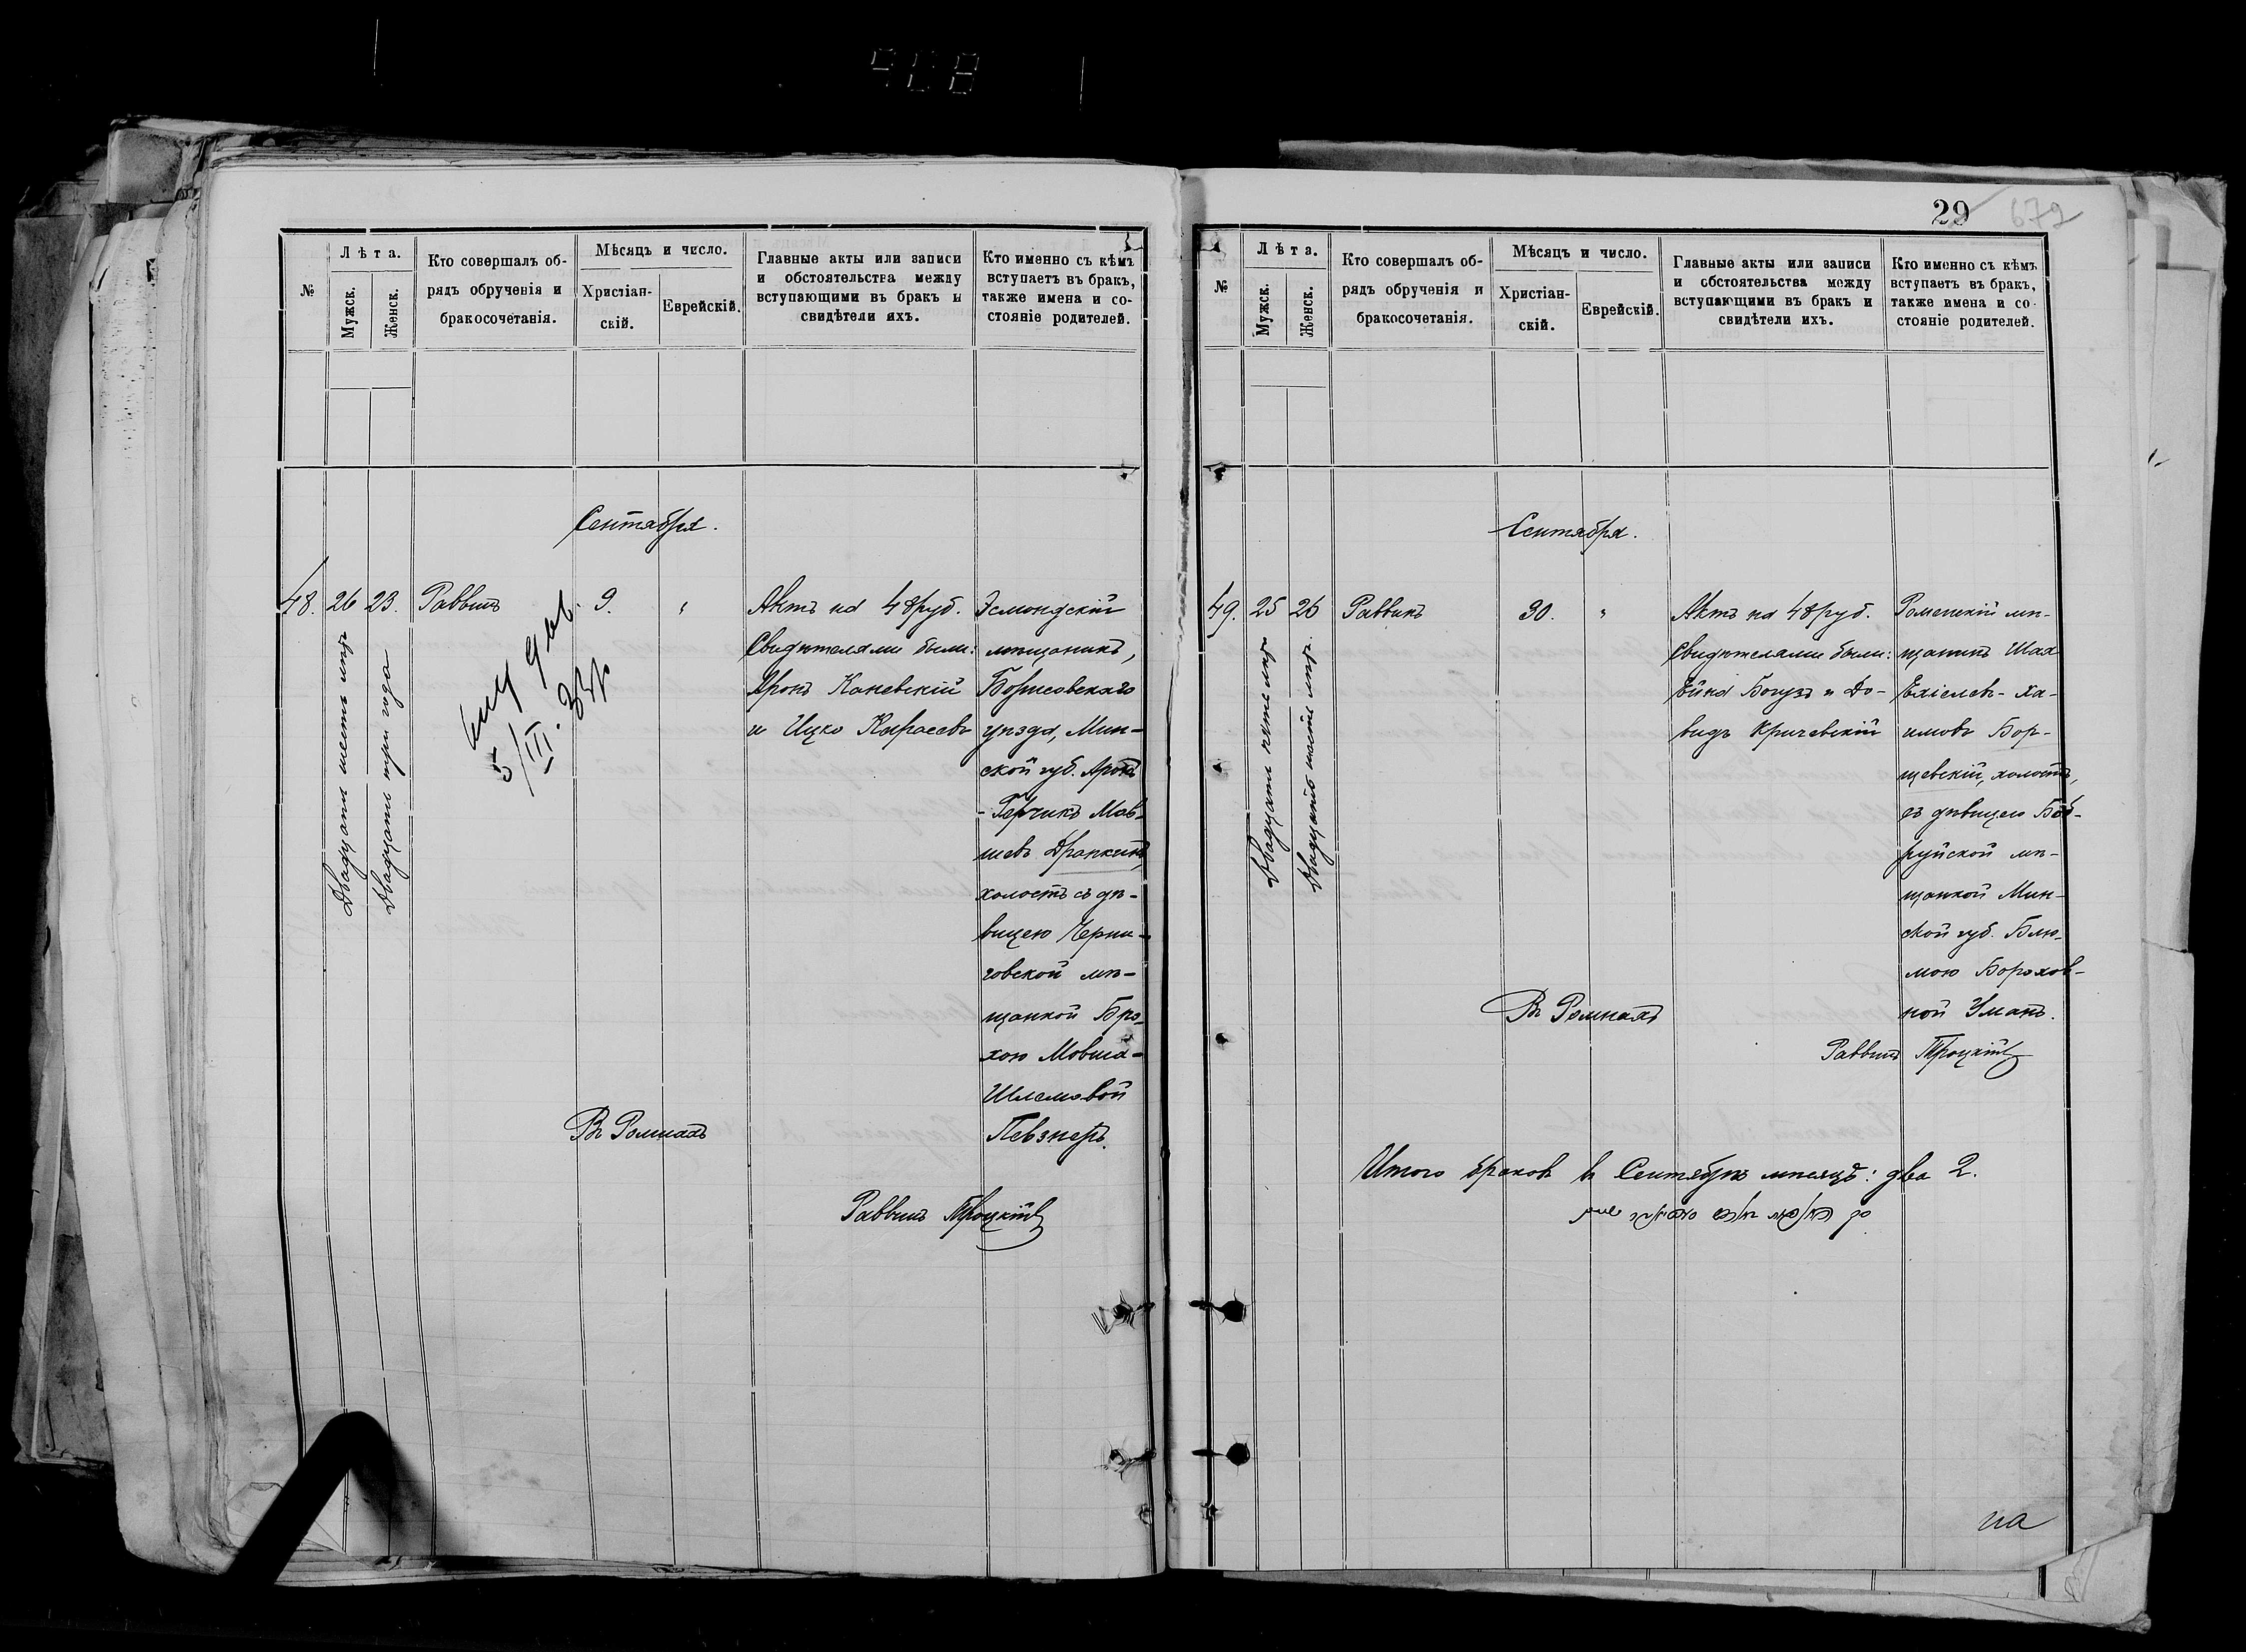 908
№
Лѣта.
Мужск.
Женск.
Кто совершалъ об-
рядъ обрученія и
бракосочетанія.
Мѣсяцъ и число.
Христіан-
скій.
Еврейскій.
Главные акты или записи
и обстоятельства между
вступающими въ бракъ и
свидѣтели ихъ.
Кто именно съ кѣмъ
вступаетъ въ бракъ,
также имена и со-
стояніе родителей.
Сентября.
48.
26
23.
Двадцати шесть лѣтъ
Двадцати три года
Раввинъ
5/III.
9.
"
Актъ на 48 руб.
Свидѣтелями были:
Аронъ Каневскій
и Ицко Карасевъ
Эсмондскій
мѣщанинъ,
Борисовскаго
уѣзда, Мин-
ской губ. Аронъ
-Герчикъ Мов-
шевъ Драпкинъ,
холостъ съ дѣ-
вицею Черни-
говской мѣ-
щанкой Бро-
хою Мовша-
Шлемовой
Певзнеръ.
Въ Ромнахъ
Раввинъ Троцкій
29
672
№
Лѣта.
Мужск.
Женск.
Кто совершалъ об-
рядъ обрученія и
бракосочетанія.
Мѣсяцъ и число.
Христіан-
скій.
Еврейскій.
Главные акты или записи
и обстоятельства между
вступающими въ бракъ и
свидѣтели ихъ.
Кто именно съ кѣмъ
вступаетъ въ бракъ,
также имена и со-
стояніе родителей.
Сентября.
49.
25
26
Двадцати пять лѣтъ
Двадцать шесть лѣтъ.
Раввинъ
30.
"
Актъ на 48 руб.
Свидѣтелями были:
Ейна и До-
видъ Кричевскій
Роменскій мѣ-
щанинъ Шая
Ехіелевъ-Ха-
имовъ Бор-
щевскій, холостъ,
съ дѣвицею Боб-
руйской мѣ-
щанкой Мин-
ской губ. Блю-
мою Борохов-
ной Уманъ.
Въ Ромнахъ
Раввинъ Троцкій
Итого браковъ въ Сентябрѣ мѣсяцѣ: два 2.
на